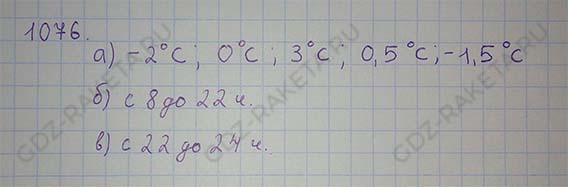 1076.
а) -2°C; 0°C; 3°C; 0,5°C; -1,5°C
б) с 8 до 22 ч.
в) с 22 до 24 ч.
GDZ-RAKETA.RU
GDZ-RAKETA.RU
GDZ-RAKETA.RU